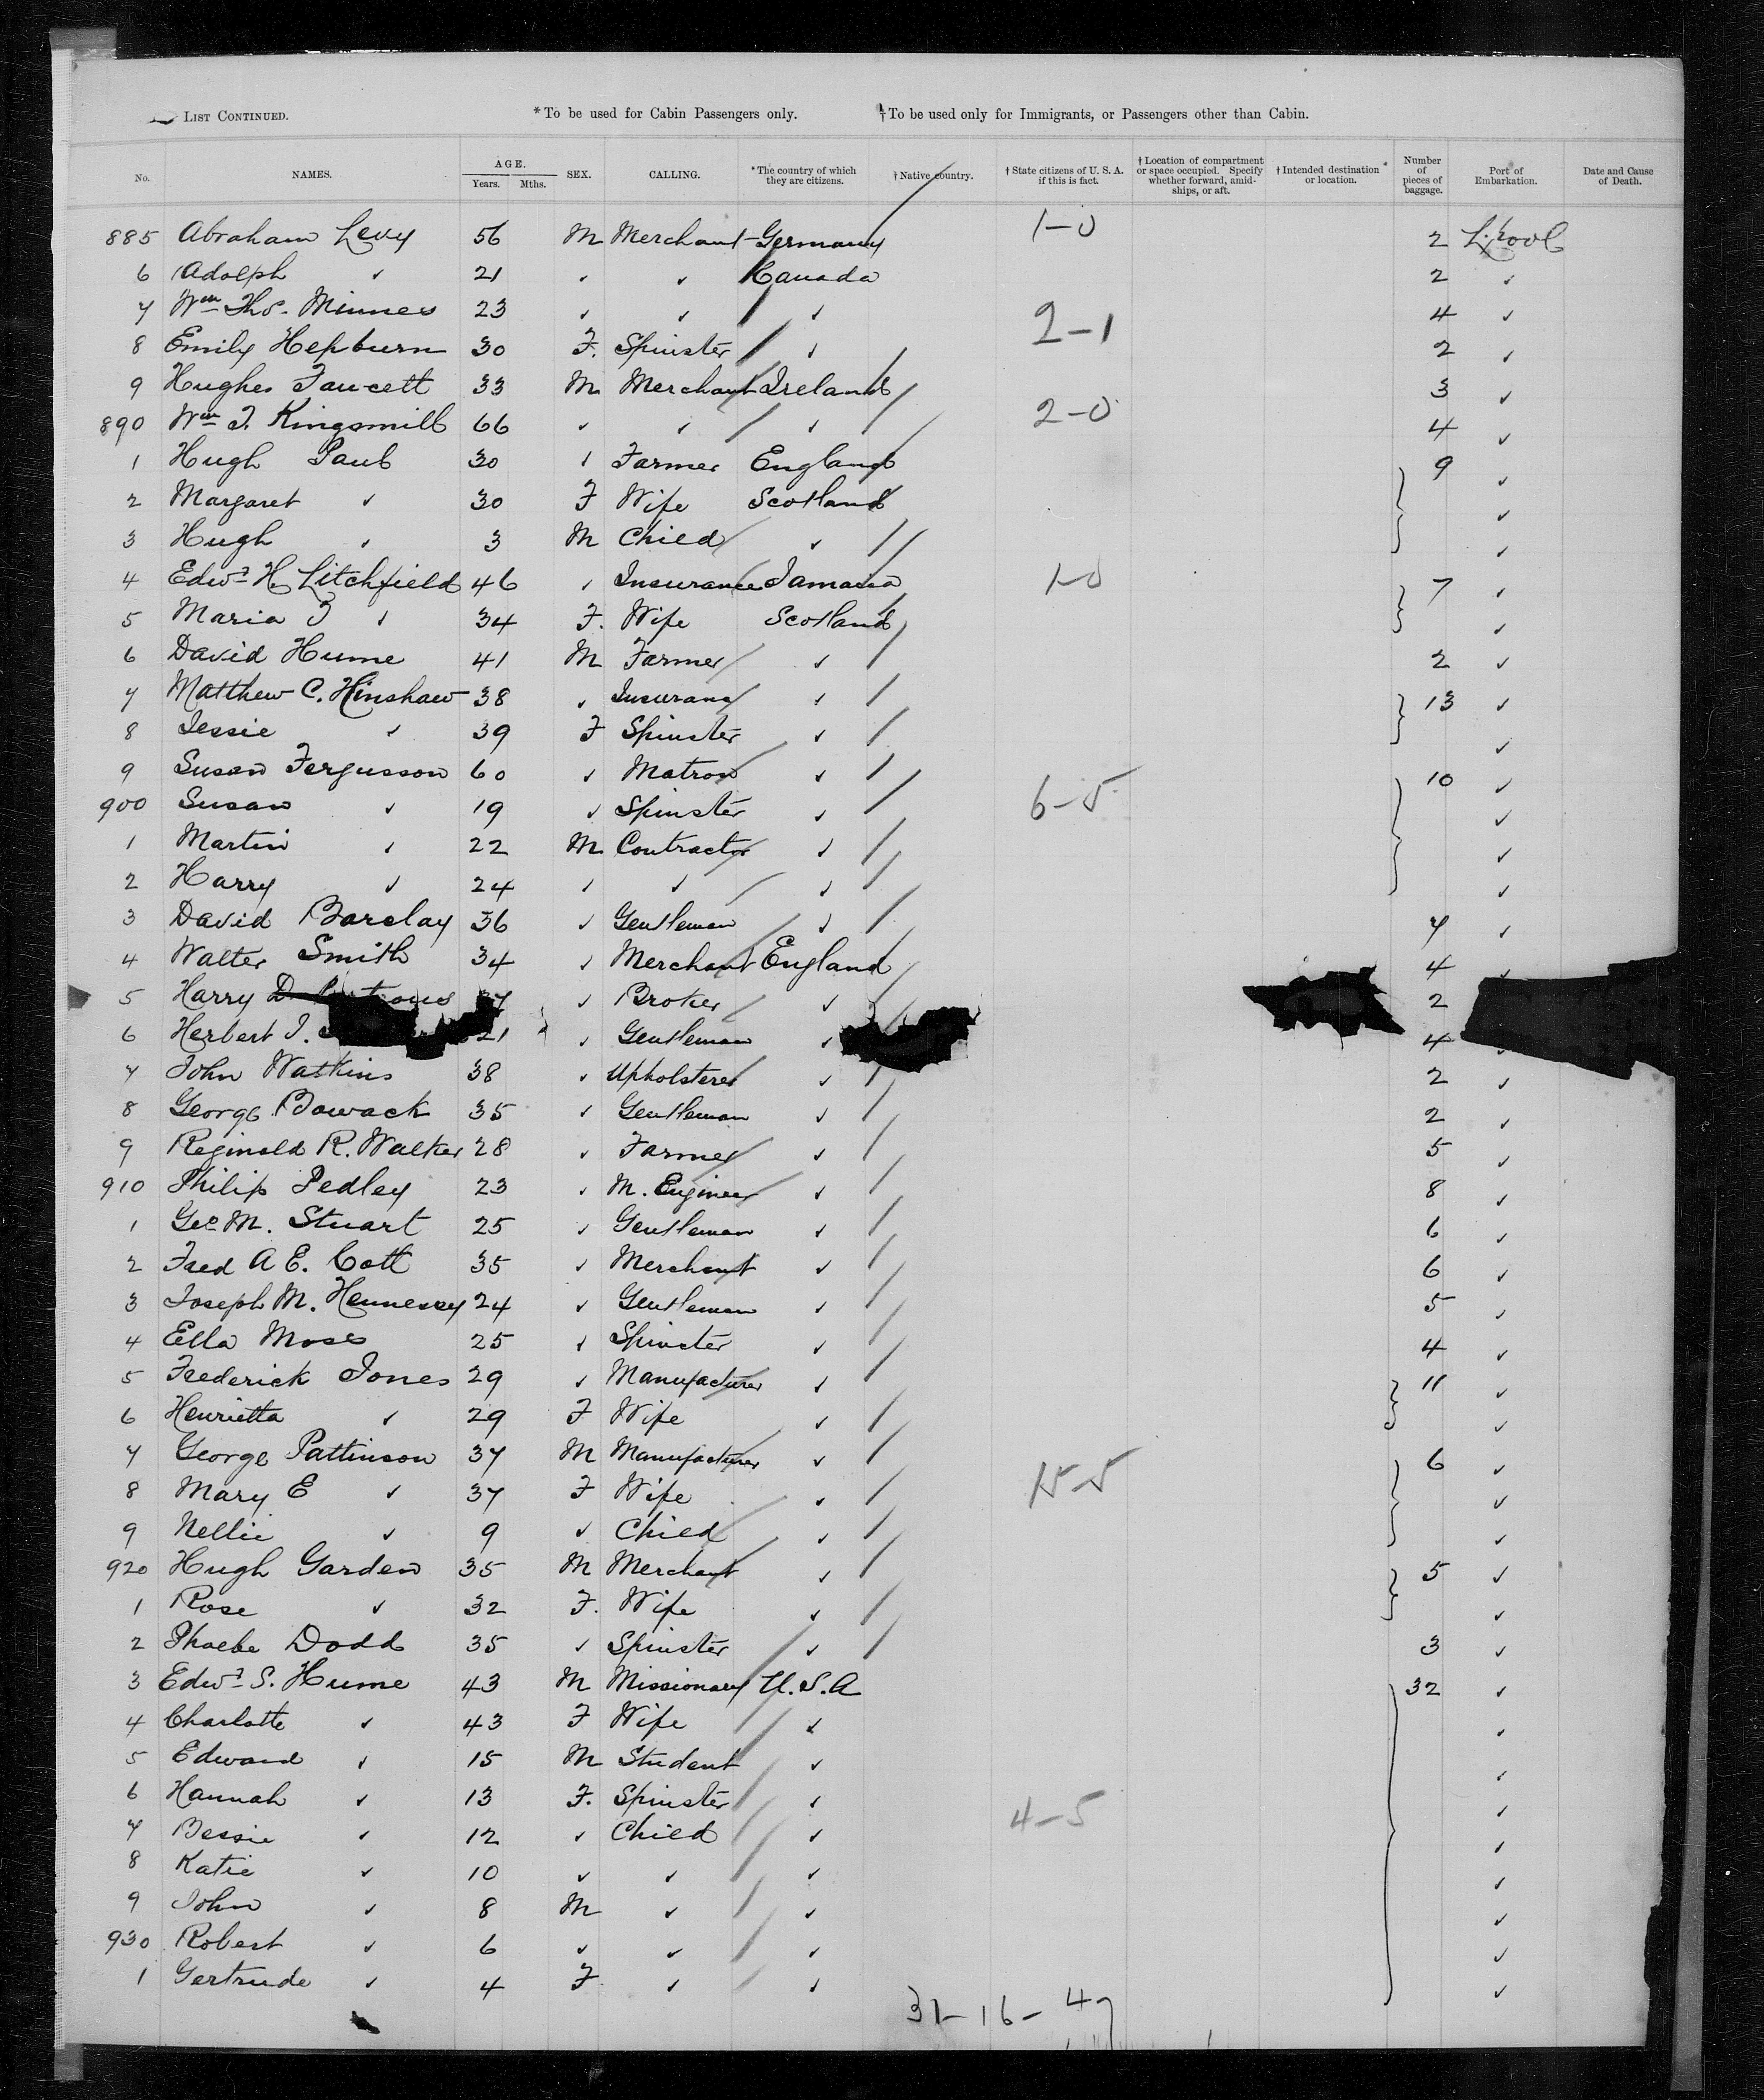 List Continued. * To be used for Cabin Passengers only. † To be used only for Immigrants, or Passengers other than Cabin.
No. NAMES. AGE. Years. Mths. SEX. CALLING. *The country of which they are citizens. †Native country. †State citizens of U. S. A. if this is fact. †Location of compartment or space occupied. Specify whether forward, amidships, or aft. †Intended destination or location. Number of pieces of baggage. Port of Embarkation. Date and Cause of Death.
885 Abraham Levy 56 M Merchant Germany 1-0 2 L.pool
6 Adolph ✓ 21 ✓ ✓ Canada 2 ✓
7 Wm Thos. Minnes 23 ✓ ✓ ✓ 4 ✓
8 Emily Hepburn 30 F. Spinster ✓ 2-1 2 ✓
9 Hughes Fawcett 33 M Merchant Ireland 3 ✓
890 Wm T. Kingsmill 66 ✓ ✓ ✓ 2-0 4 ✓
1 Hugh Paul 30 ✓ Farmer England 9 ✓
2 Margaret ✓ 30 F Wife Scotland ✓
3 Hugh ✓ 3 M Child ✓ ✓
4 Edwd H Litchfield 46 ✓ Insurance Jamaica 1-0 7 ✓
5 Maria J ✓ 34 F. Wife Scotland ✓
6 David Hume 41 M Farmer ✓ 2 ✓
7 Matthew C. Hinshaw 38 ✓ Insurance ✓ 13 ✓
8 Jessie ✓ 39 F Spinster ✓ ✓
9 Susan Fergusson 60 ✓ Matron ✓ 10 ✓
900 Susan ✓ 19 ✓ Spinster ✓ 6-5 ✓
1 Martin ✓ 22 M Contractor ✓ ✓
2 Harry ✓ 24 ✓ ✓ ✓ ✓
3 David Barclay 36 ✓ Gentleman ✓ 7 ✓
4 Walter Smith 34 ✓ Merchant England 4 ✓
5 Harry ✓ Broker ✓ 2
6 Herbert J. 21 ✓ Gentleman ✓ 4 ✓
7 John Watkins 38 ✓ Upholsterer ✓ 2 ✓
8 George Bowack 35 ✓ Gentleman ✓ 2 ✓
9 Reginald R. Walker 28 ✓ Farmer ✓ 5 ✓
910 Philip Pedley 23 ✓ M. Engineer ✓ 8 ✓
1 Geo M. Stuart 25 ✓ Gentleman ✓ 6 ✓
2 Fred A E. Cott 35 ✓ Merchant ✓ 6 ✓
3 Joseph M. Hennessy 24 ✓ Gentleman ✓ 5 ✓
4 Ella Moss 25 ✓ Spinster ✓ 4 ✓
5 Frederick Jones 29 ✓ Manufacturer ✓ 11 ✓
6 Henrietta ✓ 29 F Wife ✓ ✓
7 George Pattinson 37 M Manufacturer ✓ 6 ✓
8 Mary E ✓ 37 F Wife ✓ 15-5 ✓
9 Nellie ✓ 9 ✓ Child ✓ ✓
920 Hugh Garden 35 M Merchant ✓ 5 ✓
1 Rose ✓ 32 F. Wife ✓ ✓
2 Phoebe Dodd 35 ✓ Spinster ✓ 3 ✓
3 Edwd S. Hume 43 M Missionary U.S.A 32 ✓
4 Charlotte ✓ 43 F Wife ✓ ✓
5 Edward ✓ 15 M Student ✓ ✓
6 Hannah ✓ 13 F. Spinster ✓ 4-5 ✓
7 Bessie ✓ 12 ✓ Child ✓ ✓
8 Katie ✓ 10 ✓ ✓ ✓ ✓
9 John ✓ 8 M ✓ ✓ ✓
930 Robert ✓ 6 ✓ ✓ ✓ ✓
1 Gertrude ✓ 4 F ✓ ✓ ✓
31-16-47